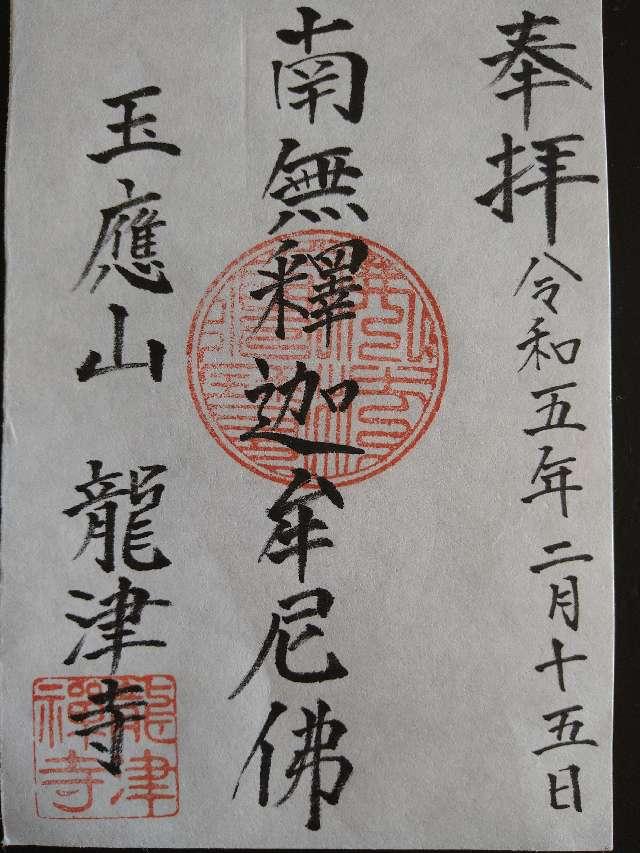 奉拝 令和五年二月十五日
南無釋迦牟尼佛
玉應山 龍津寺
龍津禪寺